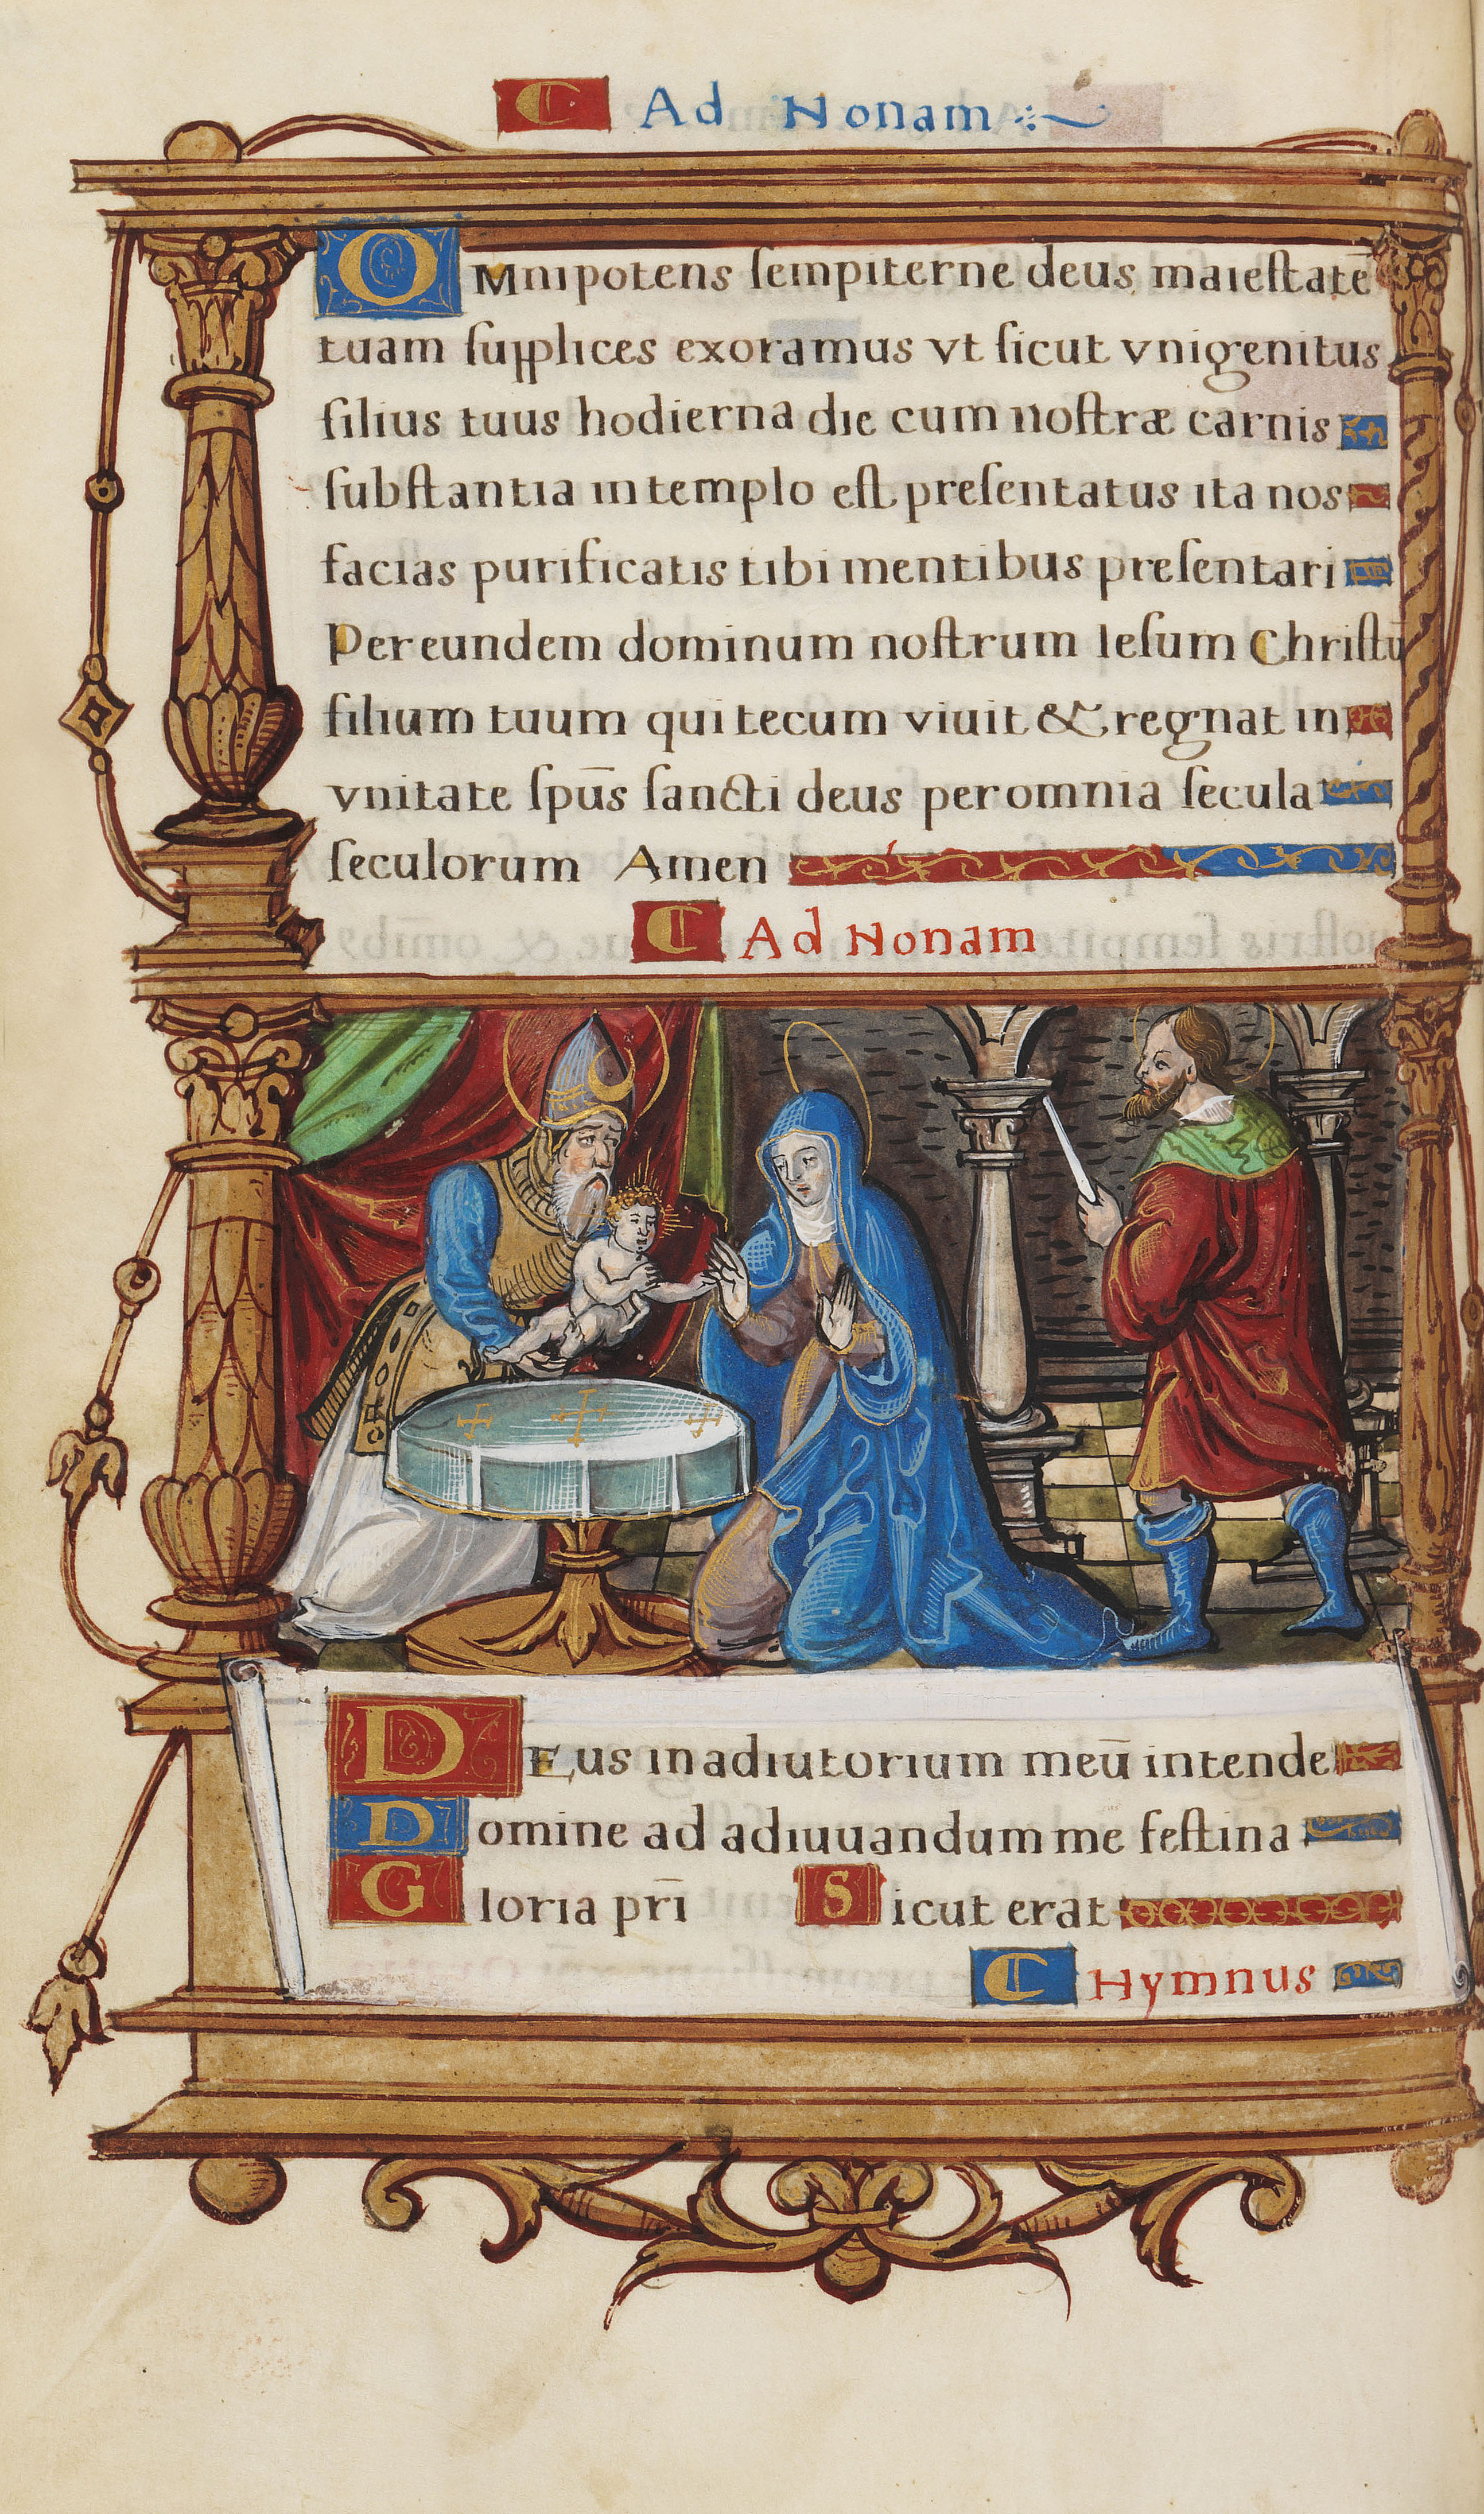 Ad Nonam
OMnipotens ſempiterne deus maieſtatē
tuam ſupplices exoramus vt ſicut vnigenitus
filius tuus hodierna die cum noſtræ carnis
ſubſtantia in templo eſt preſentatus ita nos
facias purificatis tibi mentibus preſentari
Per eundem dominum noſtrum Ieſum Chriſtū
filium tuum qui tecum viuit & regnat in
vnitate ſpūs ſancti deus per omnia ſecula
ſeculorum Amen
Ad Nonam
DEus in adiutorium meū intende
Domine ad adiuuandum me feſtina
Gloria pr̄i Sicut erat
Hymnus